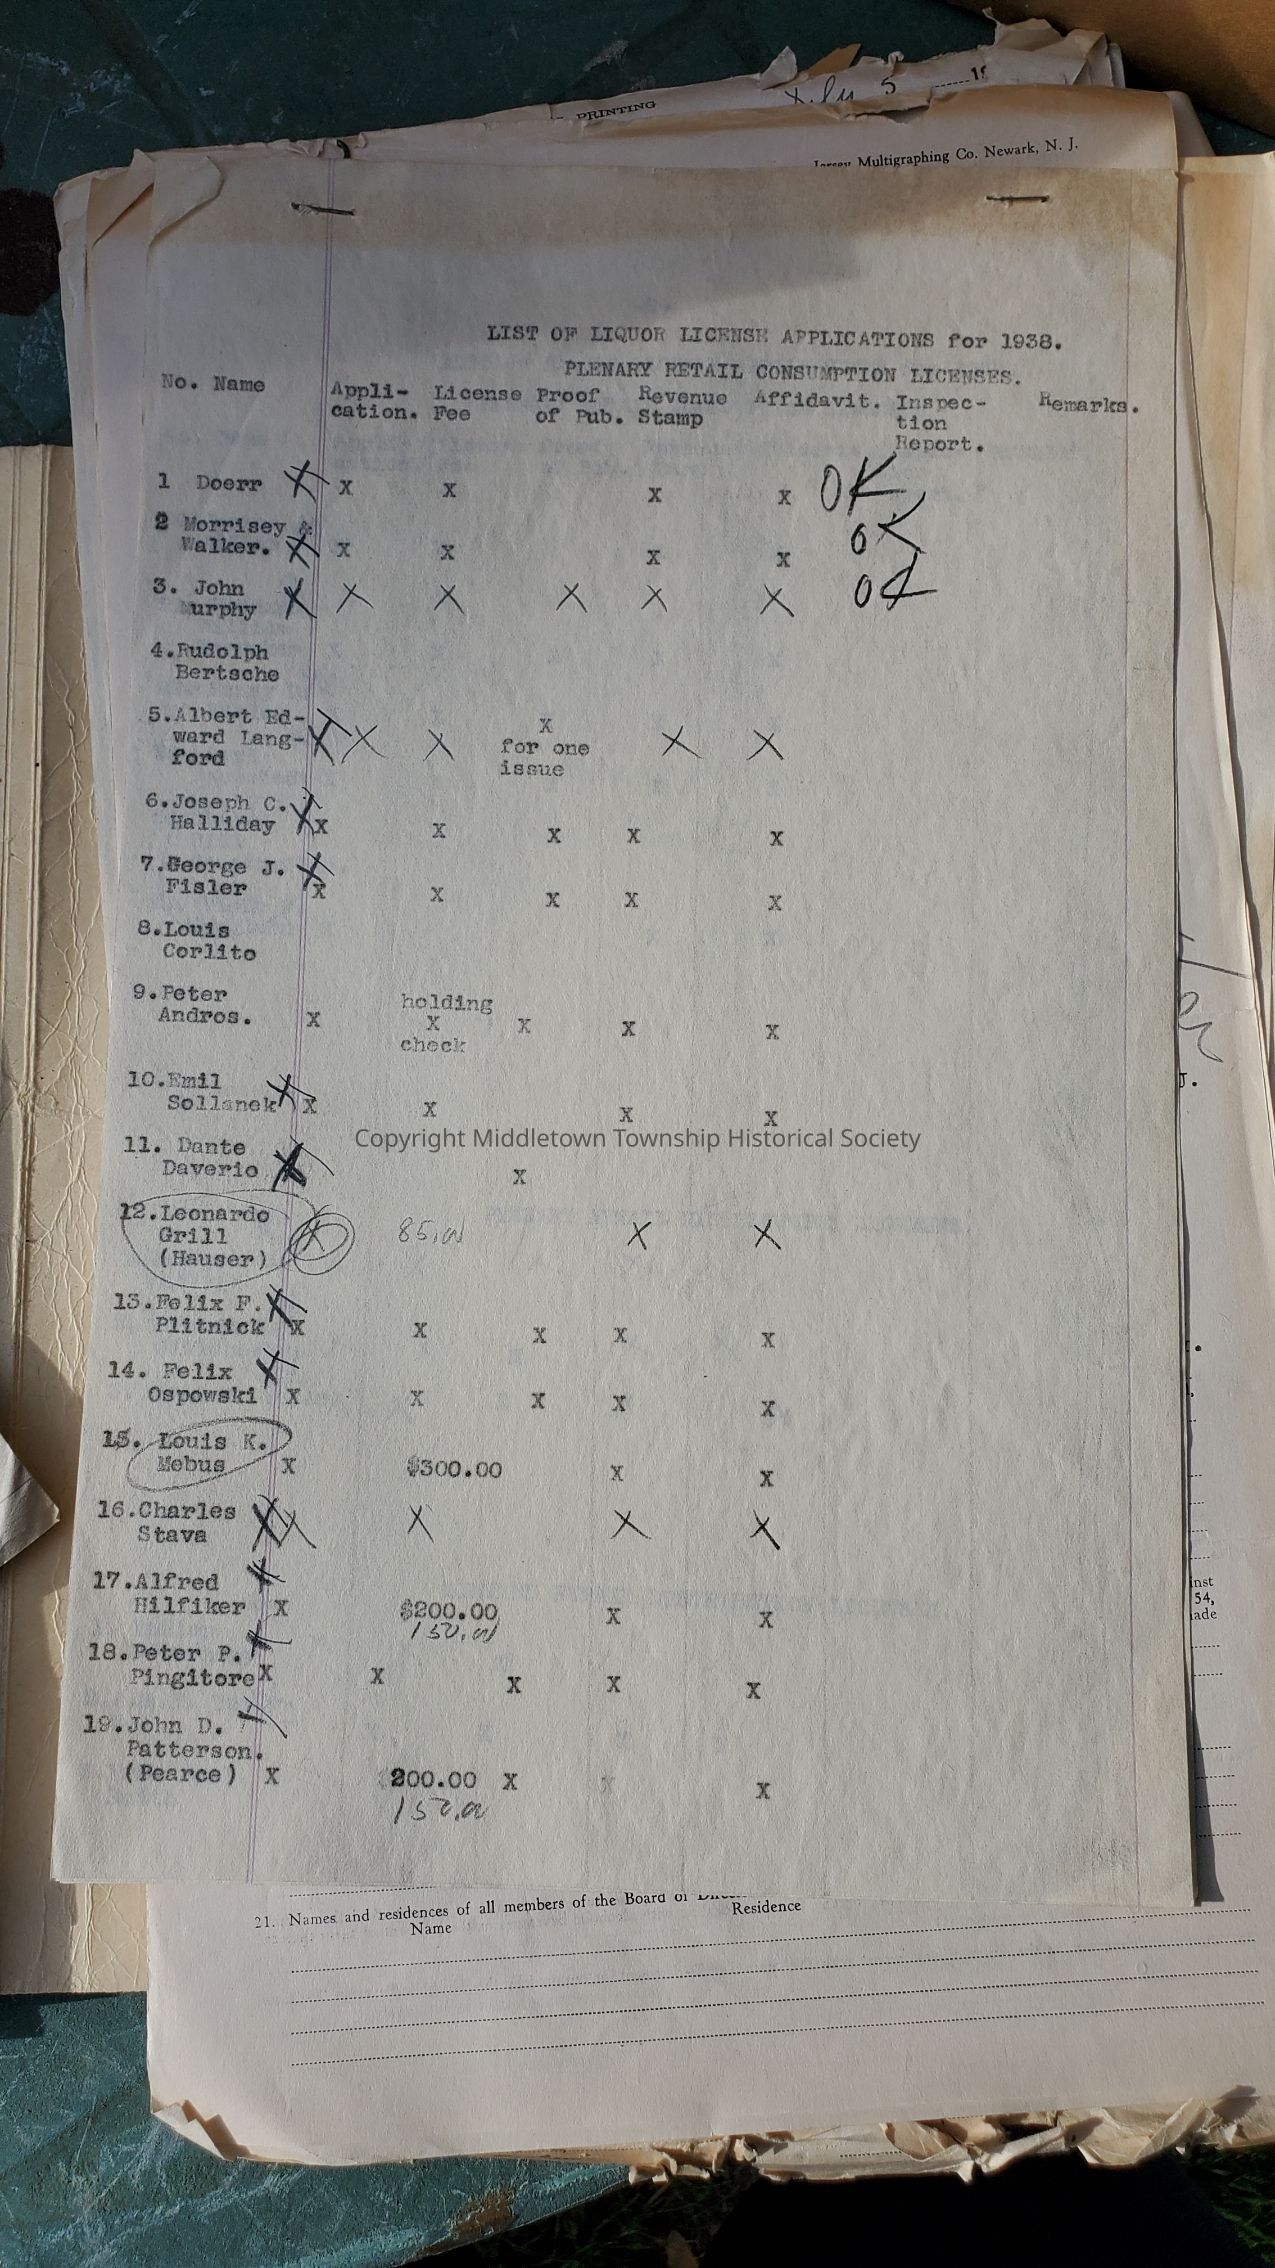 PRINTING
5
Multigraphing Co. Newark, N. J.
LIST OF LIQUOR LICENSE APPLICATIONS for 1938.
PLENARY RETAIL CONSUMPTION LICENSES.
No. Name Appli- License Proof Revenue Affidavit. Inspec- Remarks.
cation. Fee of Pub. Stamp tion
Report.
1 Doerr X X X X X OK
2 Morrisey &
Walker. X X X X X OK
3. John
Murphy X X X X X X OK
4.Rudolph
Bertsche
5.Albert Ed- X
ward Lang- X X X for one X X
ford issue
6.Joseph C.
Halliday X X X X X X
7.George J.
Fisler X X X X X X
8.Louis
Corlito
9.Peter holding
Andros. X X X X X
check
10.Emil
Sollanek X X X X X
11. Dante
Daverio X X
12.Leonardo
Grill X 85.00 X X
(Hauser)
13.Felix F.
Plitnick X X X X X X
14. Felix
Ospowski X X X X X X
15. Louis K.
Mebus X $300.00 X X
16.Charles
Stava X X X X X
17.Alfred
Hilfiker X X $200.00 X X
150.00
18.Peter P.
Pingitore X X X X X X
19.John D.
Patterson.
(Pearce) X X 200.00 X X X
150.00
Copyright Middletown Township Historical Society
J.
inst
54,
ade
21. Names and residences of all members of the Board of
Name Residence